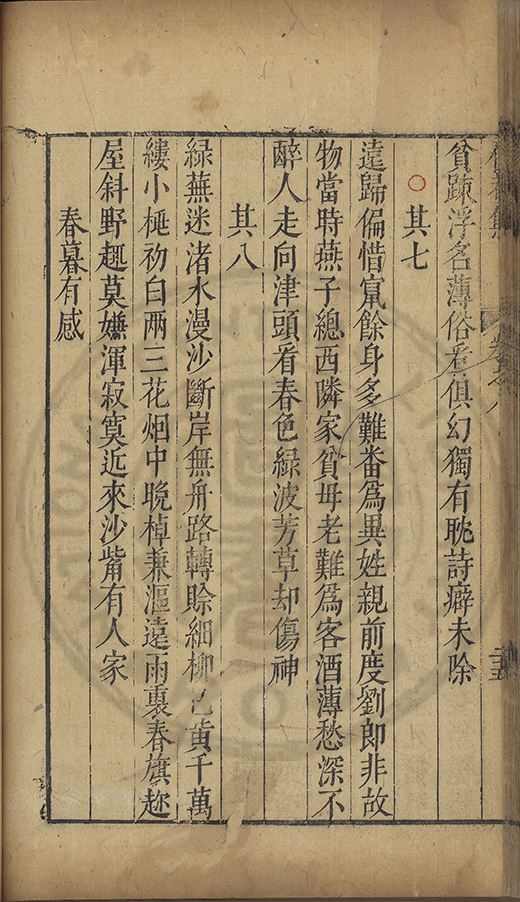 貧踈浮名薄俗看俱幻獨有耽詩癖未除
○其七
遠歸偏惜竄餘身多難番爲異姓親前度劉郎非故
物當時燕子總西隣家貧毋老難爲客酒薄愁深不
醉人走向津頭看春色緑波芳草却傷神
其八
緑蕪迷渚水漫沙斷岸無舟路轉賒細柳已黄千萬
縷小桃初白兩三花烟中晚棹兼漚遠雨裏春旗趂
屋斜野趣莫嫌渾寂寞近來沙觜有人家
春暮有感